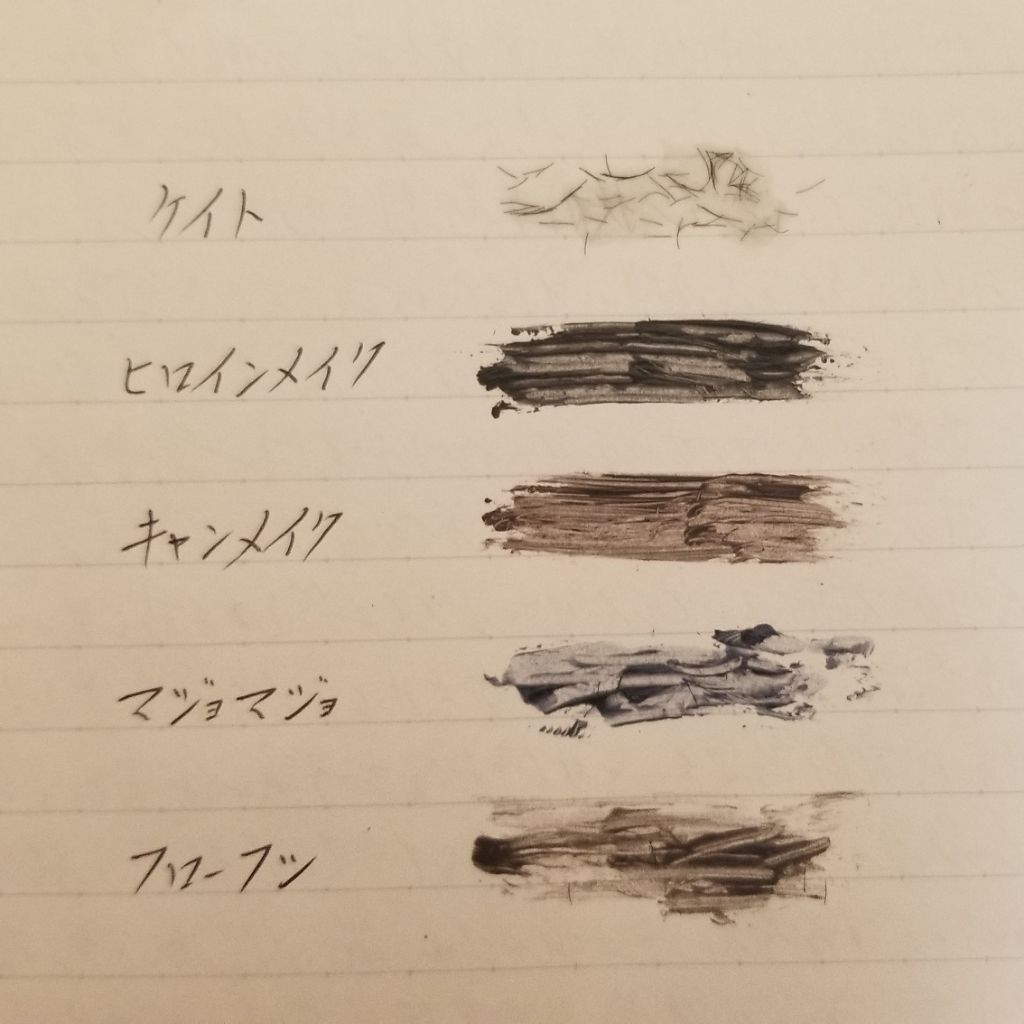 ケイト
ヒロインメイク
キャンメイク
マジョマジョ
フローフシ